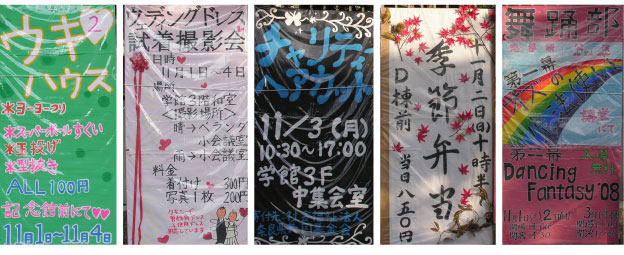 ウキ♡2
ハウス
*ヨーヨーつり
*スーパーボールすくい
*玉投げ
*型抜き
ALL100円
記念館前にて♡♡
11月1日〜11月4日
ウェディングドレス
試着撮影会
日時
11月1日〜4日
場所
学館3階和室
<撮影場所>
晴→ベランダ
小会議室
雨→小会議室
料金
着付け 300円
写真1枚 200円
チャリティー
ヘアカット
11/3(月)
10:30〜17:00
学館3F
中集会室
季節弁当
十一月二日(日)十時半
D棟前 当日八五〇円
舞踊部
第一幕
講堂
第二幕
入場
無料
Dancing
Fantasy'08